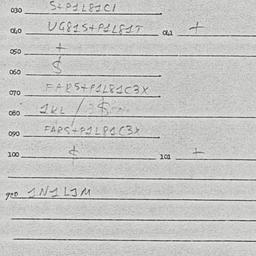 030 S+P1L81C1
040 UG81S+P1L81T 041 +
050 +
060 $
070 FARS+P1L81C3X
080 1KL /
090 FARS+P1L81C3X
100 $ 101 +
900 1N1L1M